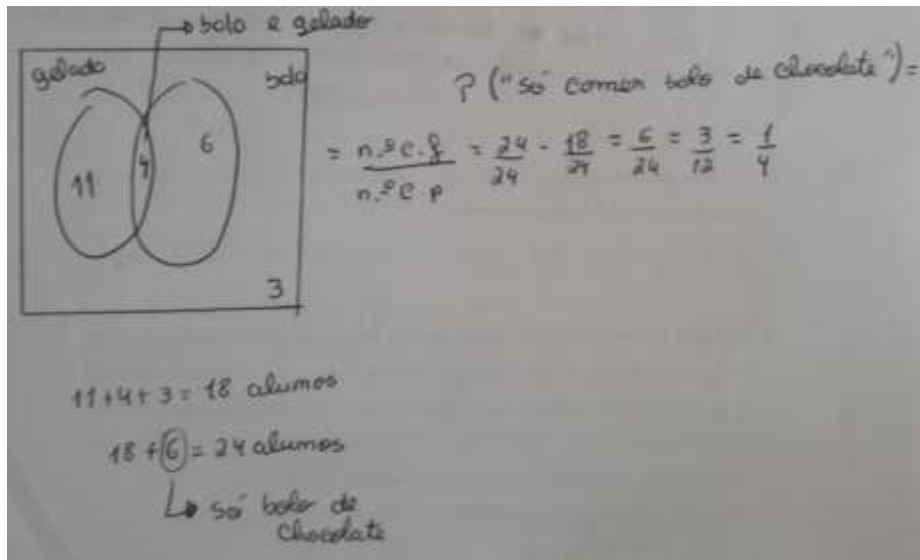 bolo e gelado
gelado
bolo
11
4
6
3
P ("só comer bolo de chocolate") =
= n.º c.f / n.º c.p = 24/24 - 18/24 = 6/24 = 3/12 = 1/4
11+4+3 = 18 alunos
18+6 = 24 alunos
só bolo de
chocolate